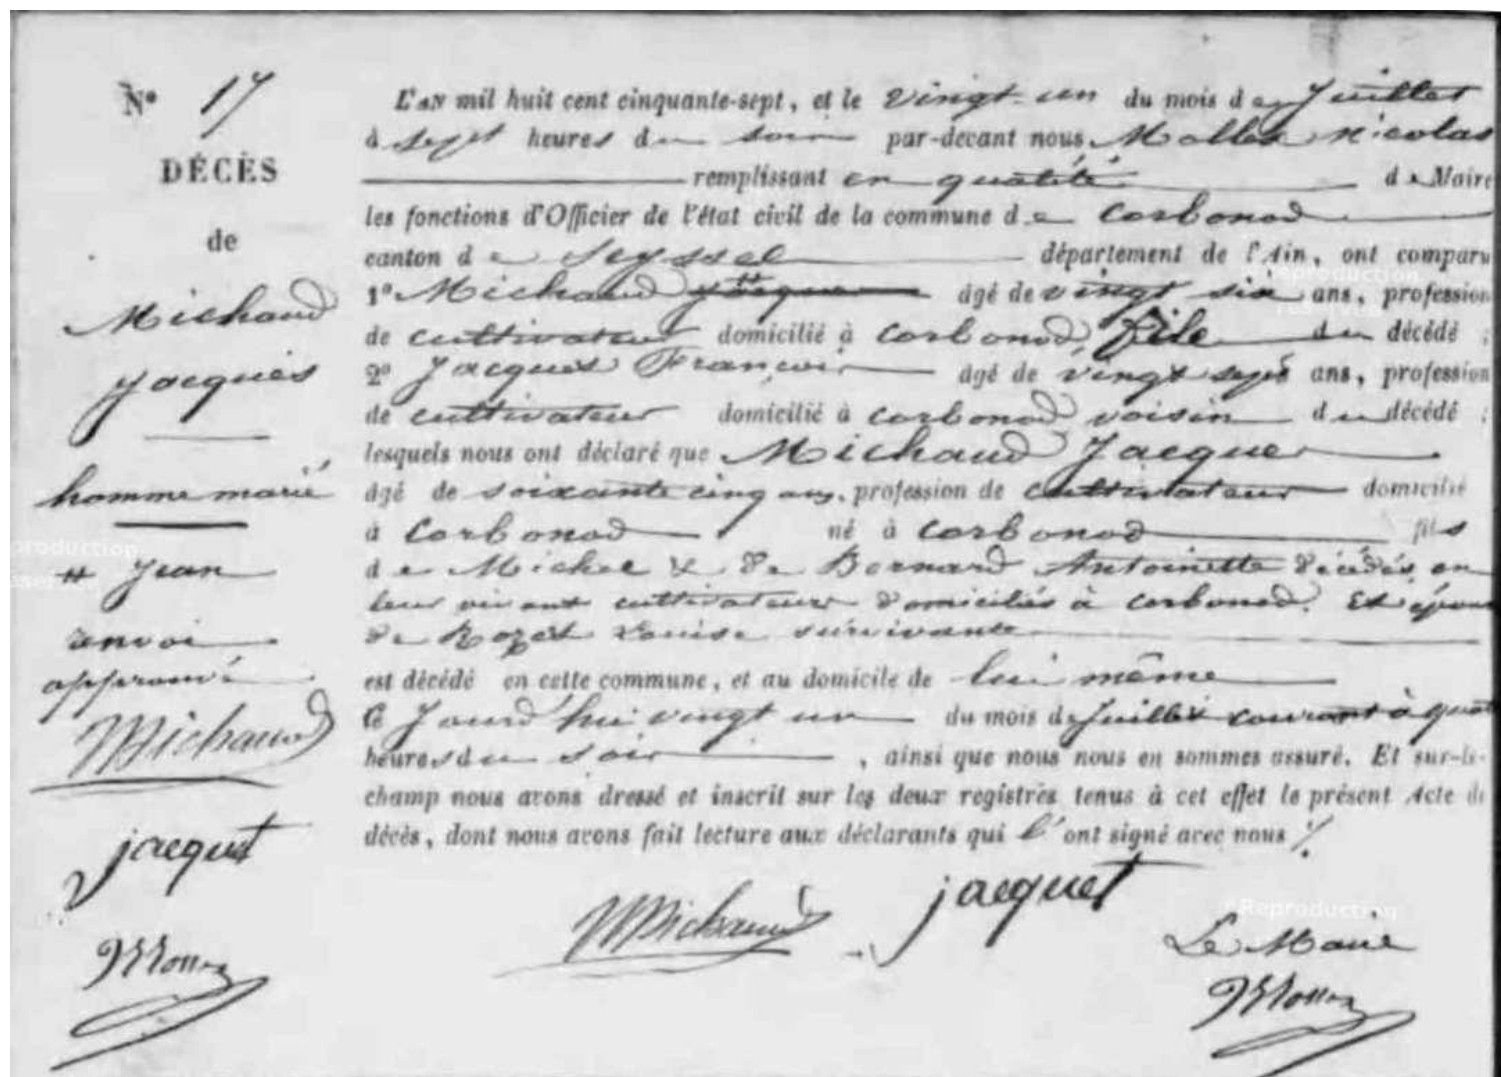 Nº 17
DÉCÈS
de
Michaud
Jacques
homme marié
# Jean
renvoi
approuvé
Michaud
jacquet
L'AN mil huit cent cinquante-sept, et le vingt-un du mois de Juillet
à sept heures du soir par-devant nous Nicolas
remplissant en qualité de Maire
les fonctions d'Officier de l'état civil de la commune de Corbonod
canton de Seyssel département de l'Ain, ont comparu
1º Michaud # Jacques âgé de vingt six ans, profession
de cultivateur domicilié à Corbonod, fils du décédé ;
2º Jacquet François âgé de vingt sept ans, profession
de cultivateur domicilié à Corbonod voisin du décédé ;
lesquels nous ont déclaré que Michaud Jacques
âgé de soixante cinq ans, profession de cultivateur domicilié
à Corbonod né à Corbonod fils
de Michel & de Bornard Antoinette décédés, en
leur vivant cultivateurs domiciliés à Corbonod. Et époux
de Rozet Louise survivante
est décédé en cette commune, et au domicile de lui même
Ce Jourd'hui vingt un du mois de Juillet courant à quatre
heures du soir, ainsi que nous nous en sommes assuré. Et sur-le-
champ nous avons dressé et inscrit sur les deux registres tenus à cet effet le présent Acte de
décès, dont nous avons fait lecture aux déclarants qui l'ont signé avec nous ./.
Michaud
jacquet
Le Maire
Reproduction